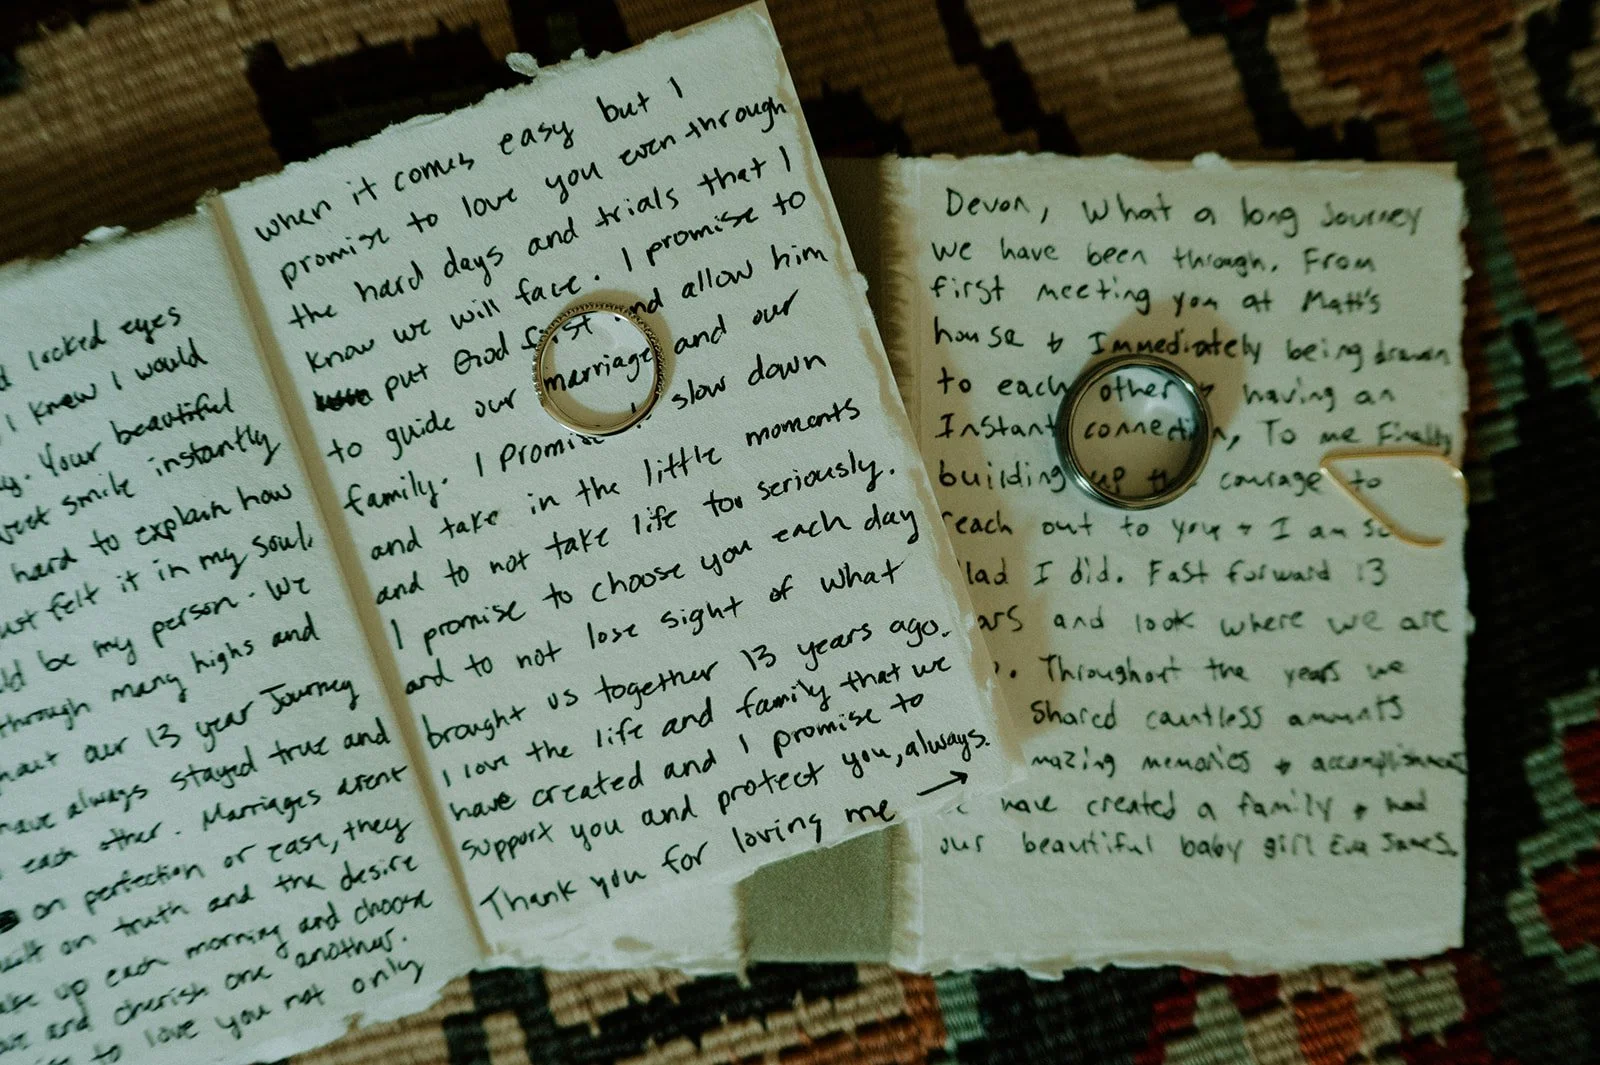 locked eyes
I knew I would
Your beautiful
smile instantly
hard to explain how
felt it in my soul,
be my person. We
through many highs and
our 13 year Journey
have always stayed true and
each other. Marriages arent
on perfection or ease, they
on truth and the desire
up each morning and choose
and cherish one another.
to love you not only
when it comes easy but I
promise to love you even through
the hard days and trials that I
know we will face. I promise to
put God first and allow him
to guide our marriage and our
family. I promise to slow down
and take in the little moments
and to not take life too seriously.
I promise to choose you each day
and to not lose sight of what
brought us together 13 years ago.
I love the life and family that we
have created and I promise to
support you and protect you, always.
Thank you for loving me →
Devon, What a long Journey
we have been through. From
first meeting you at Matt's
house & Immediately being drawn
to each other & having an
Instant connection, To me Finally
building up the courage to
reach out to you & I am so
lad I did. Fast forward 13
ars and look where we are
. Throughout the years we
shared countless amounts
mazing memories & accomplishment
have created a family & had
our beautiful baby girl Eva James.